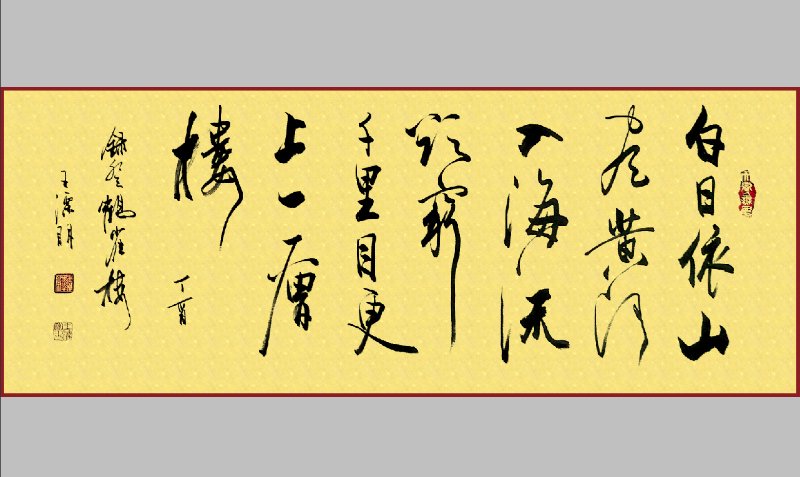 白日依山
尽黄河
入海流
欲穷
千里目更
上一层
楼
丁酉
录登鹳雀楼